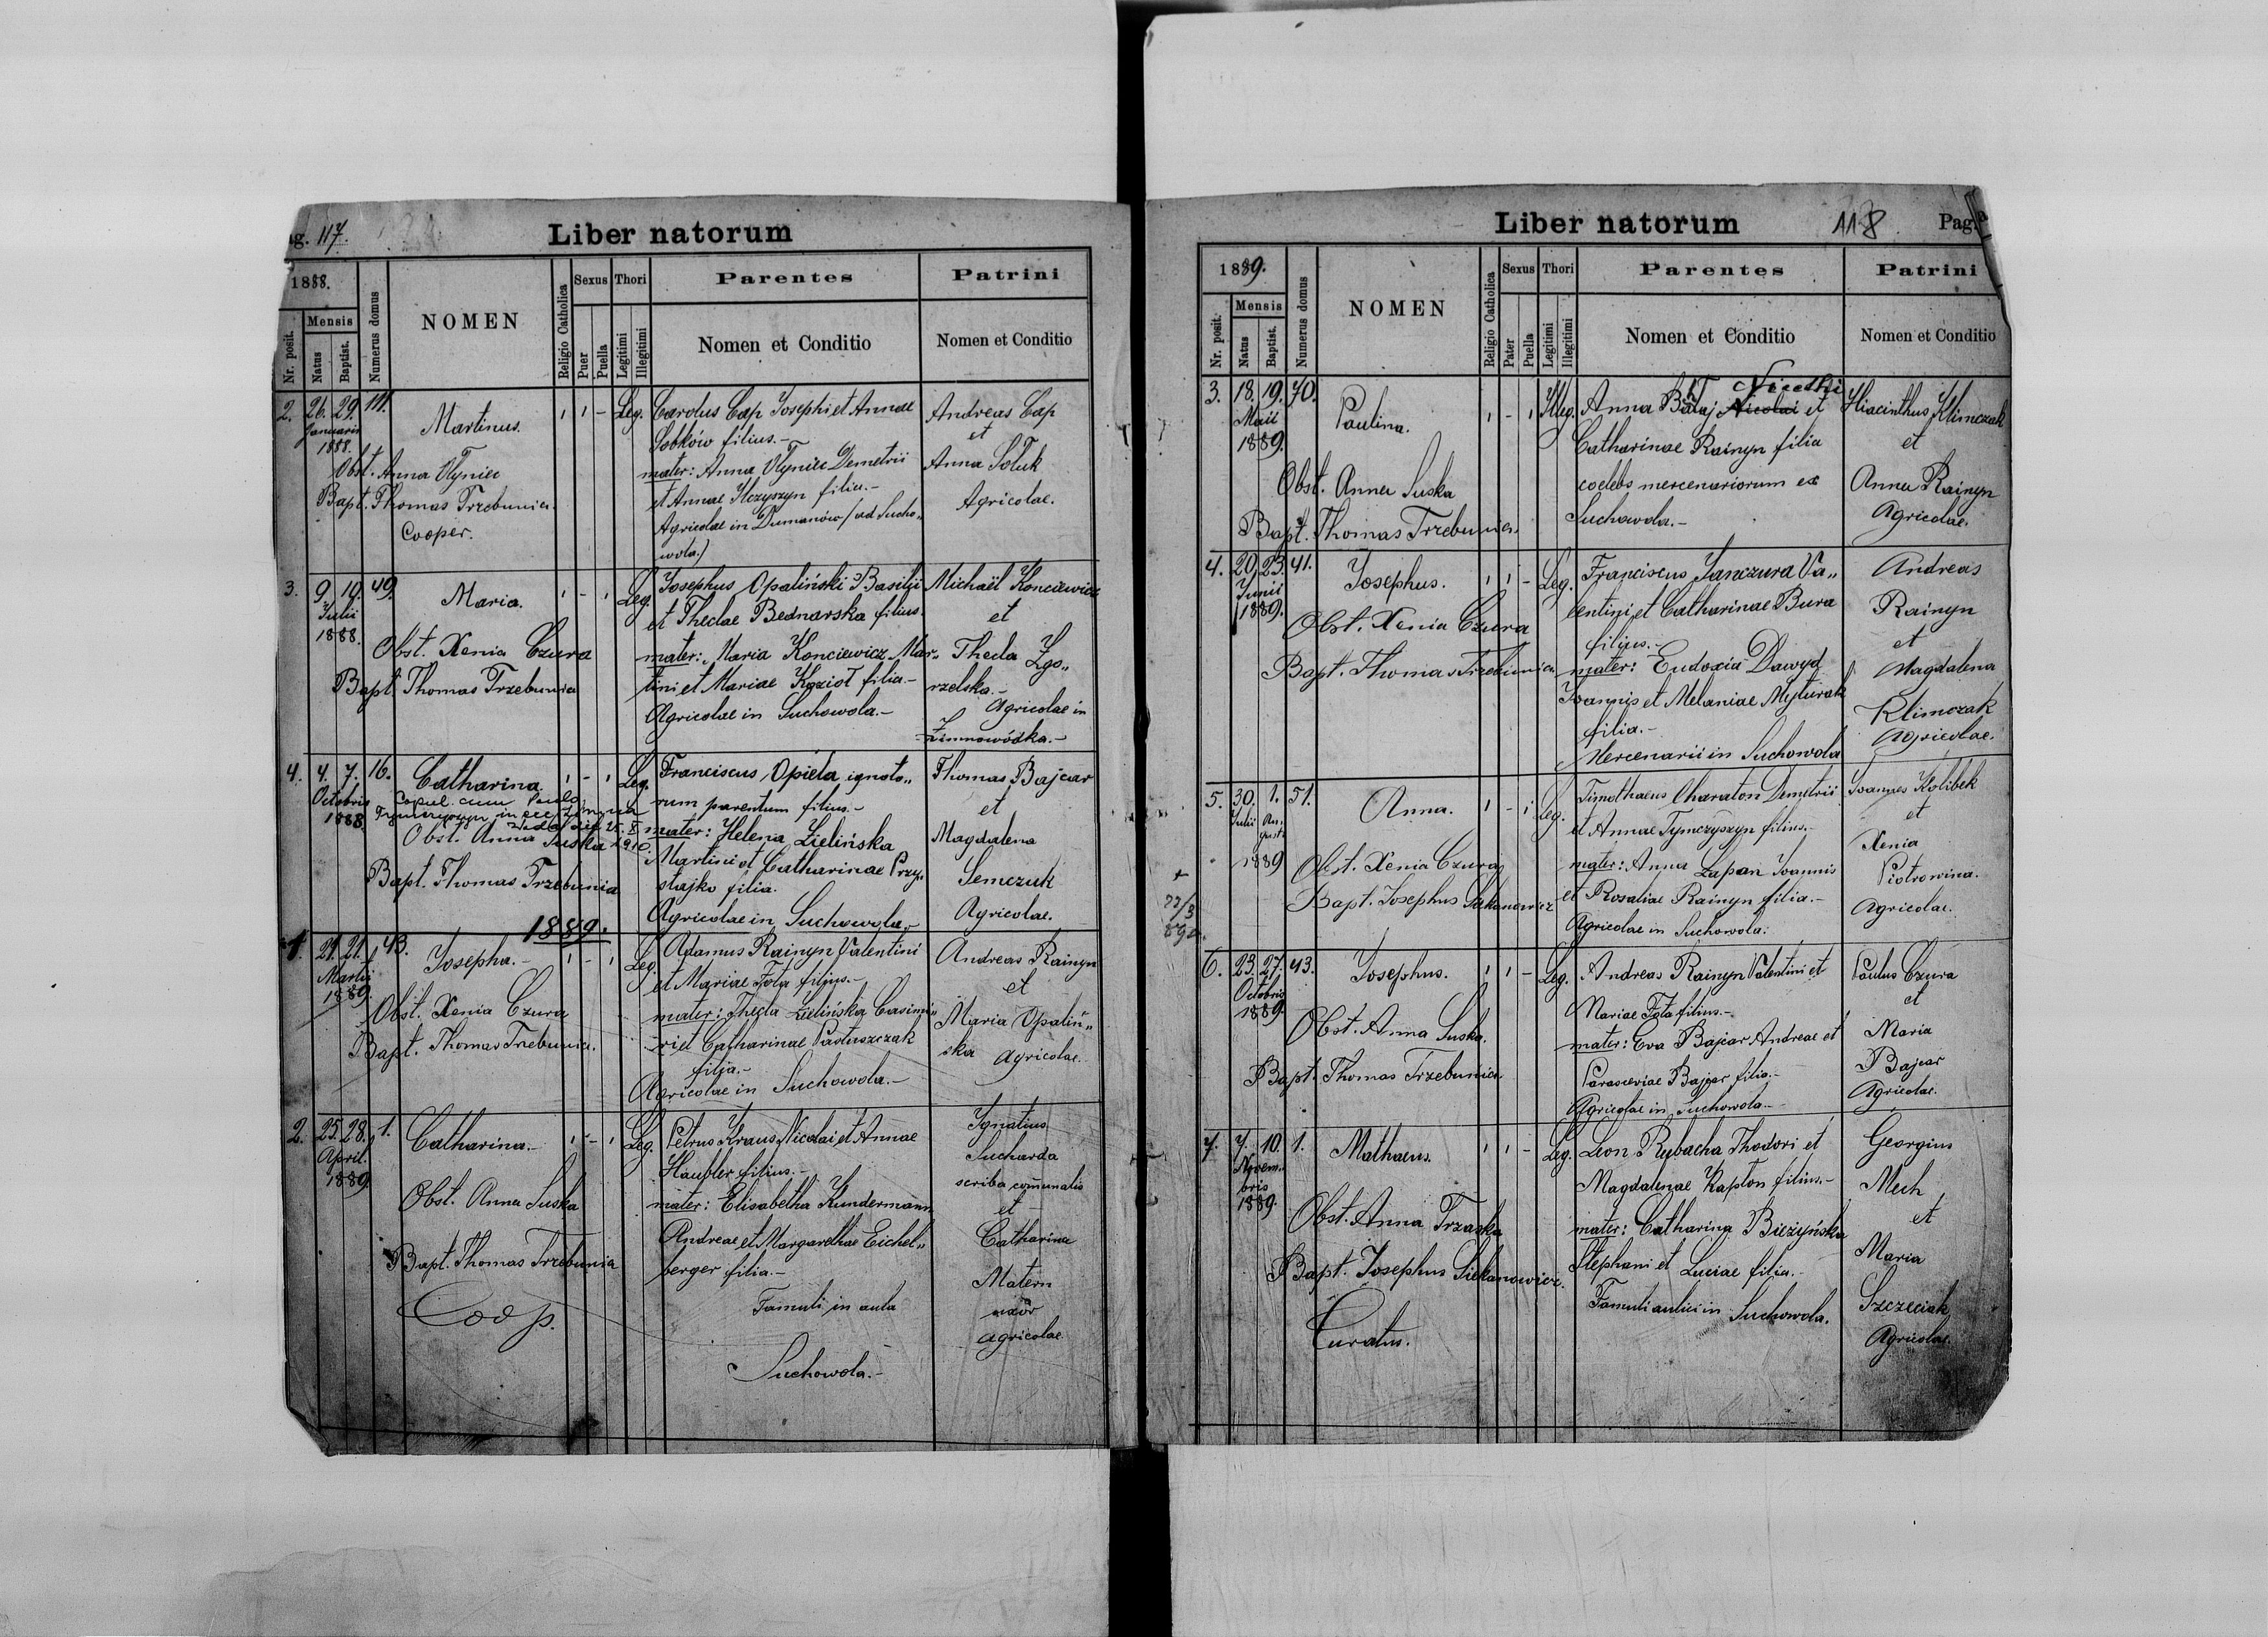 Pag. 117.
Liber natorum
1888.
Nr. posit.
Mensis
Natus
Baptist.
Numerus domus
NOMEN
Religio Catholica
Sexus
Puer
Puella
Thori
Legitimi
Illegitimi
Parentes
Nomen et Conditio
Patrini
Nomen et Conditio
2. 26. 29. 111.
Januarii
1888.
Martinus.
Obst. Anna Olyniec
Bapt. Thomas Trzebunia
Cooper.
Leg.
Carolus Cap Josephi et Annae
Sobków filius.-
mater: Anna Olyniec Demetrii
et Annae Ilczyszyn filia.-
Agricolae in Dumanów (ad Sucho„
wola.)
Andreas Cap
et
Anna Soluk
Agricolae.
3. 9. 19. 49.
Julii
1888.
Maria.
Obst. Xenia Czura
Bapt. Thomas Trzebunia
Leg.
Josephus Opaliński Basilii
et Theclae Bednarska filius.
mater: Maria Konciewicz Mar„
tini et Mariae Kozioł filia.-
Agricolae in Suchowola.-
Michaël Konciewicz
et
Thecla Zgo„
rzelska.-
Agricolae in
Zimnowódka.-
4. 4. 7. 16.
Octobris
1888
Catharina.
Copul. cum Paulo
Obst. Anna Suska
Bapt. Thomas Trzebunia
Leg.
Franciscus Opiela ignoto„
rum parentum filius.-
mater: Helena Zielińska
Martini et Catharinae Przy„
stajko filia.
Agricolae in Suchowola.-
Thomas Bajcar
et
Magdalena
Semczuk
Agricolae.
1889.
1. 21. 21. 43.
Martii
1889.
Josepha.-
Obst. Xenia Czura
Bapt. Thomas Trzebunia.
Leg.
Adamus Rainyn Valentini
et Mariae Fota filius.-
mater: Thecla Zielińska Casimi„
ri et Catharinae Pastuszczak
filia.-
Agricolae in Suchowola.-
Andreas Rainyn
et
Maria Opaliń„
ska Agricolae.
2. 25. 28. 1.
April.
1889
Catharina.-
Obst. Anna Suska
Bapt. Thomas Trzebunia
Coop.
Leg.
Petrus Kraus Nicolai et Annae
Haubler filius.-
mater: Elisabetha Kundermann
Andreae et Margarethae Eichel„
berger filia.-
Famuli in aula
Suchowola.-
Ignatius
Sucharda
scriba com̄unalis
et
Catharina
Matern
uxor
agricolae.
Liber natorum
118. Pag.
1889.
Nr. posit.
Mensis
Natus
Baptist.
Numerus domus
NOMEN
Religio Catholica
Sexus
Pater
Puella
Thori
Legitimi
Illegitimi
Parentes
Nomen et Conditio
Patrini
Nomen et Conditio
3. 18. 19. 70.
Maii
1889.
Paulina.
Obst. Anna Suska
Bapt. Thomas Trzebunia.
Illeg.
Nicethi
Anna Bałaj Nicolai et
Catharinae Rainyn filia
coelebs mercenariorum ex
Suchowola.-
Hiacinthus Klimczak
et
Anna Rainyn
Agricolae.
4. 20. 23. 41.
Junii
1889.
Josephus.
Obst. Xenia Czura
Bapt. Thomas Trzebunia
Leg.
Franciscus Janczura Va„
lentini et Catharinae Bura
filius.-
mater: Eudoxia Dawyd
Joannis et Melaniae Myturak
filia.-
Mercenarii in Suchowola
Andreas
Rainyn
et
Magdalena
Klimczak
Agricolae.
5. 30. 1. 51.
Julii Au„
gusti
1889
Anna.
Obst. Xenia Czura
Bapt. Josephus Siekanowicz
Leg.
Timothaeus Charaton Demetrii
et Annae Tymczyszyn filius.-
mater: Anna Łapan Joannis
et Rosaliae Rainyn filia.-
Agricolae in Suchowola.
Joannes Kolibek
et
Xenia
Piotrowina.
Agricolae.
6. 23. 27. 43.
Octobris
1889.
Josephus.
Obst. Anna Suska.
Bapt. Thomas Trzebunia
Leg.
Andreas Rainyn Valentini et
Mariae Fota filius.-
mater: Eva Bajcar Andreae et
Parasceviae Bajcar filia.-
Agricolae in Suchowola.-
Paulus Czura
et
Maria
Bajcar
Agricolae.
7. 7. 10. 1.
Novem„
bris
1889.
Mathaeus.
Obst. Anna Trzaska
Bapt. Josephus Siekanowicz.
Curatus.
Leg.
Leon Rybacha Thodori et
Magdalenae Kapton filius.-
mater: Catharina Bieżyńska
Stephani et Luciae filia.-
Famuli aulici in Suchowola.
Georgius
Mech
et
Maria
Szczeciak
Agricolae.